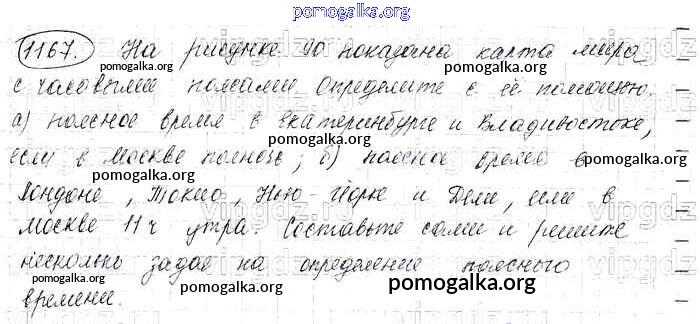 pomogalka.org
1167. На рисунке 90 показана карта мира
pomogalka.org pomogalka.org
с часовыми поясами Определите с её помощью.
pomogalka.org
а) поясное время в Екатеринбурге и Владивостоке,
pomogalka.org
если в Москве полночь; б) поясное время в
pomogalka.org
Лондоне, Токио, Нью-Йорке и Дели, если в
pomogalka.org
Москве 11 ч утра. Составьте сами и решите
pomogalka.org
несколько задач на определение поясного
pomogalka.org pomogalka.org
времени.
pomogalka.org